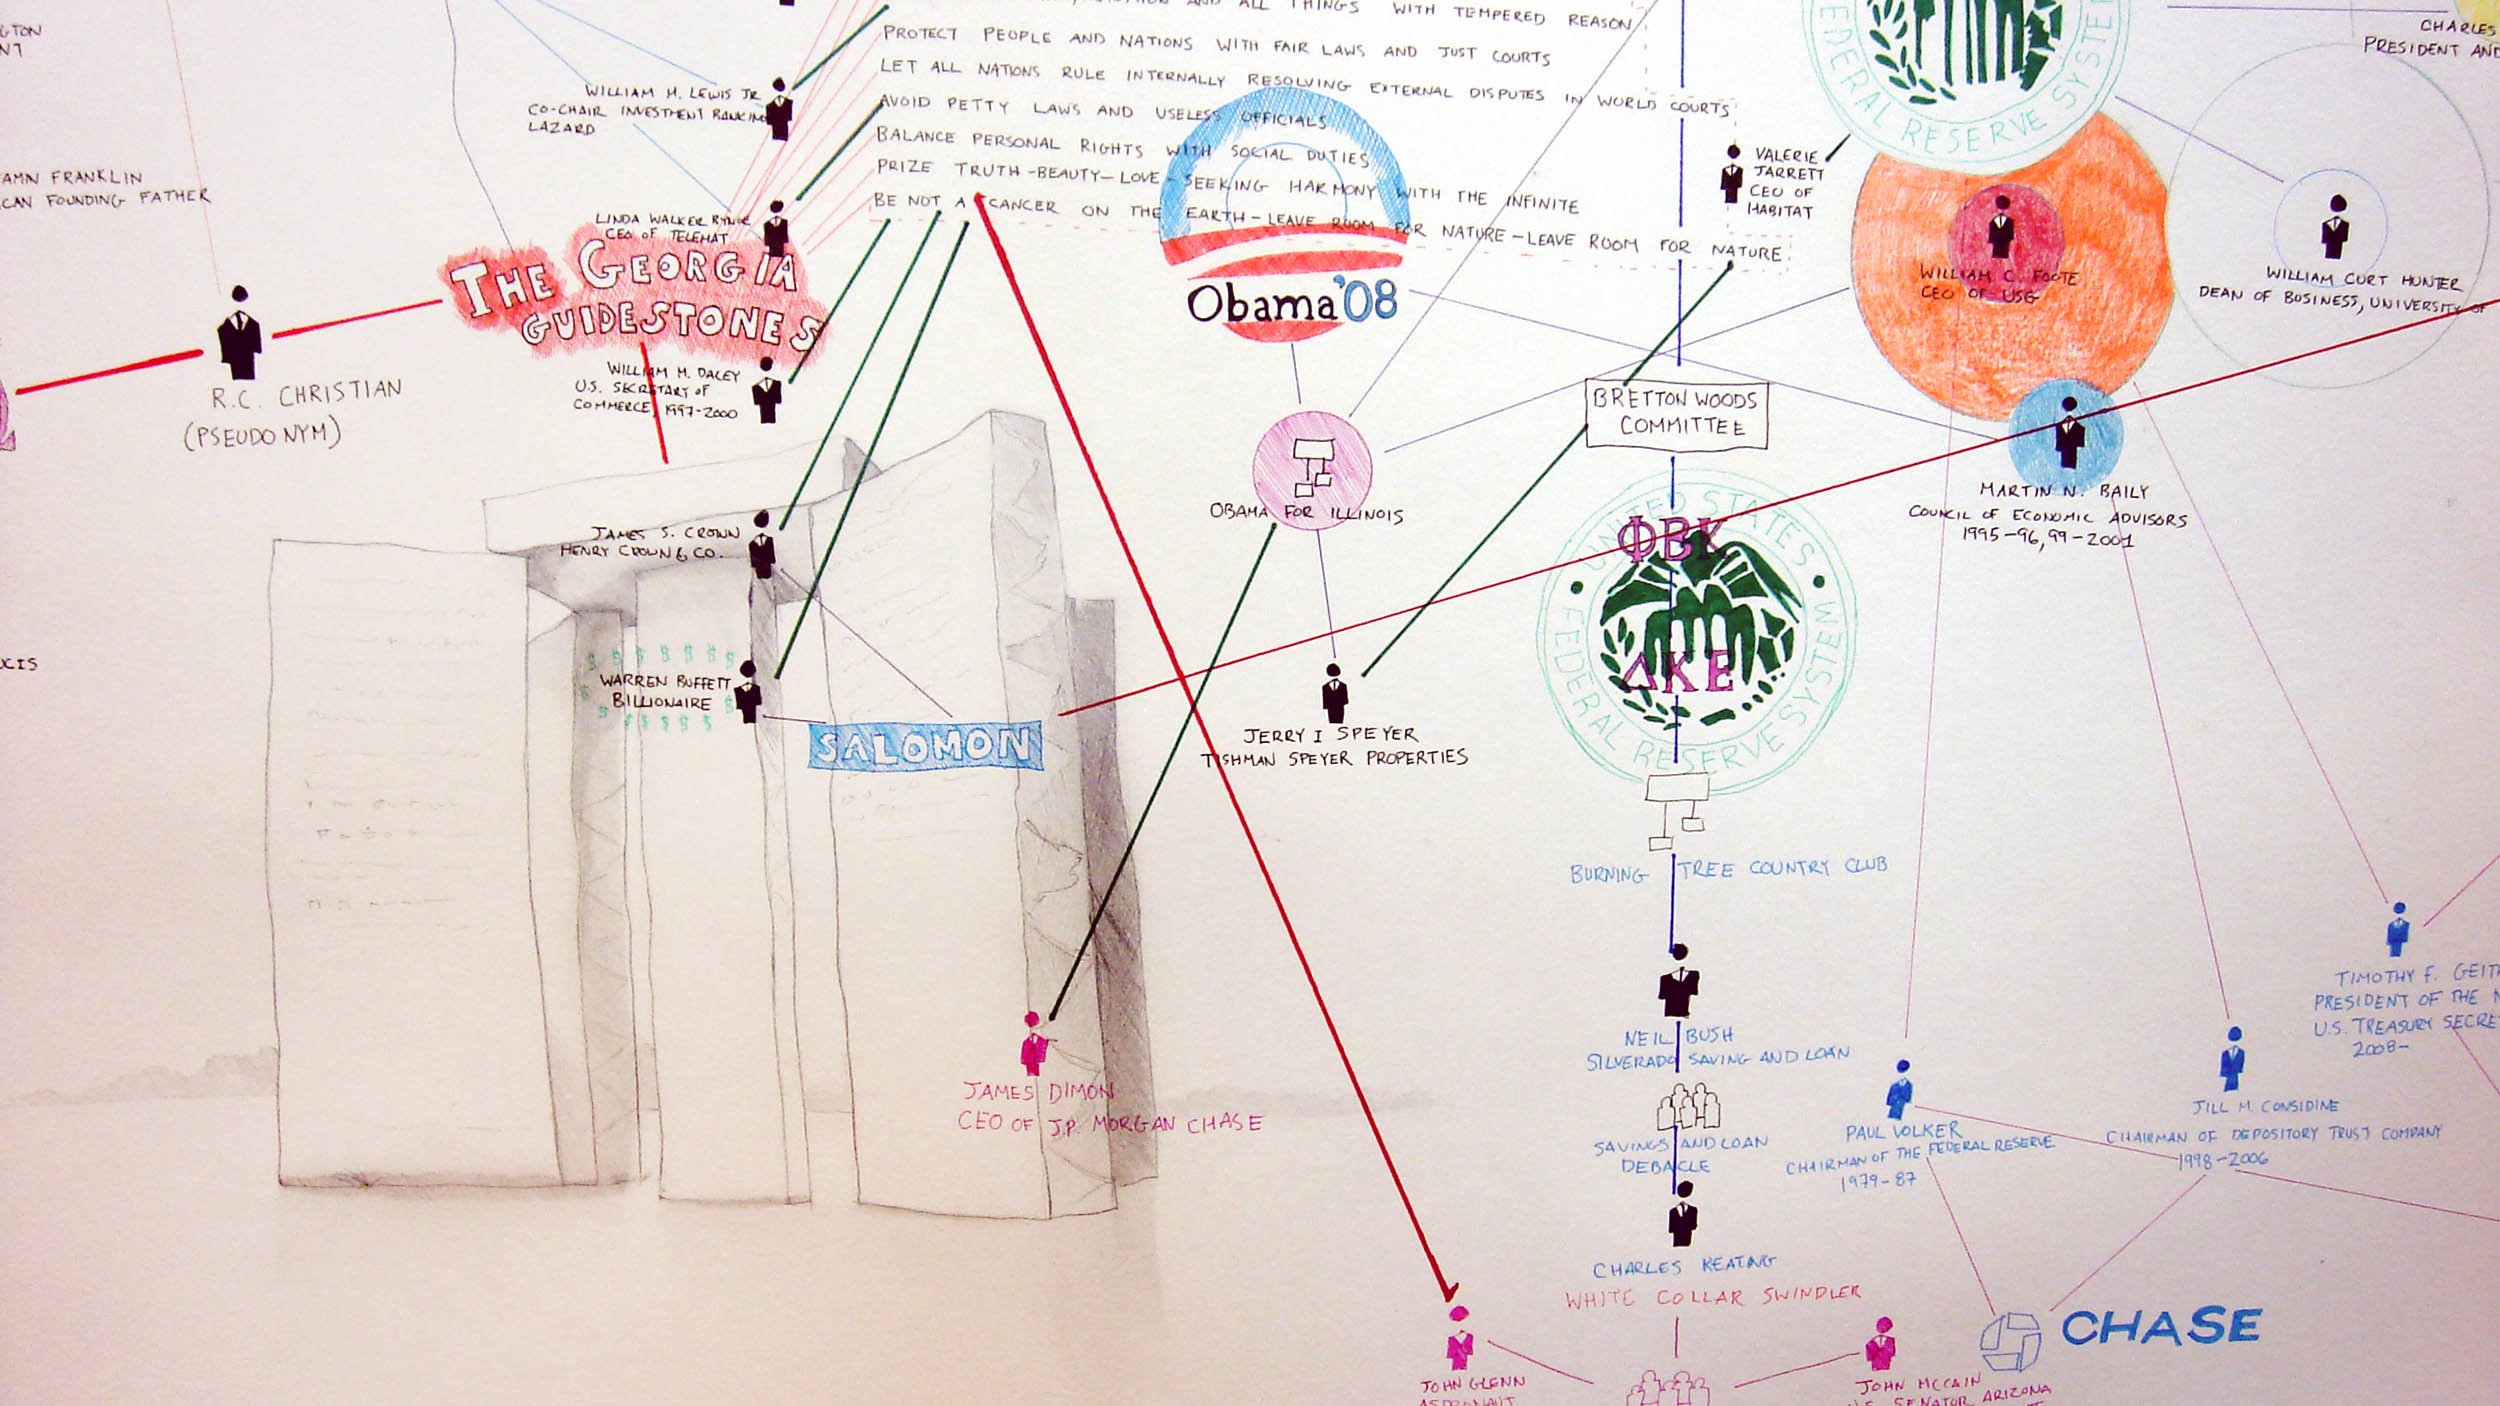 AND ALL THINGS WITH TEMPERED REASON
PROTECT PEOPLE AND NATIONS WITH FAIR LAWS AND JUST COURTS
LET ALL NATIONS RULE INTERNALLY RESOLVING EXTERNAL DISPUTES IN WORLD COURTS
AVOID PETTY LAWS AND USELESS OFFICIALS
BALANCE PERSONAL RIGHTS WITH SOCIAL DUTIES
PRIZE TRUTH-BEAUTY-LOVE-SEEKING HARMONY WITH THE INFINITE
BE NOT A CANCER ON THE EARTH-LEAVE ROOM FOR NATURE-LEAVE ROOM FOR NATURE
WILLIAM M. LEWIS JR
CO-CHAIR INVESTMENT BANKING
LAZARD
FRANKLIN
FOUNDING FATHER
LINDA WALKER
CEO OF TELEMAT
THE GEORGIA
GUIDESTONES
R.C. CHRISTIAN
(PSEUDONYM)
WILLIAM M. DALEY
U.S. SECRETARY OF
COMMERCE, 1997-2000
JAMES S. CROWN
HENRY CROWN & CO.
$ $ $ $ $ $ $
WARREN BUFFETT
BILLIONAIRE
$ $ $ $ $
SALOMON
JAMES DIMON
CEO OF J.P. MORGAN CHASE
Obama '08
OBAMA FOR ILLINOIS
JERRY I SPEYER
TISHMAN SPEYER PROPERTIES
VALERIE
JARRETT
CEO OF
HABITAT
FEDERAL RESERVE SYSTEM
CHARLES
PRESIDENT AND
WILLIAM C. FOOTE
CEO OF USG
WILLIAM CURT HUNTER
DEAN OF BUSINESS, UNIVERSITY OF
MARTIN N. BAILY
COUNCIL OF ECONOMIC ADVISORS
1995-96, 99-2001
BRETTON WOODS
COMMITTEE
UNITED STATES
FEDERAL RESERVE SYSTEM
ΦΒΚ
ΔΚΕ
BURNING TREE COUNTRY CLUB
NEIL BUSH
SILVERADO SAVING AND LOAN
SAVINGS AND LOAN
DEBACLE
CHARLES KEATING
WHITE COLLAR SWINDLER
PAUL VOLKER
CHAIRMAN OF THE FEDERAL RESERVE
1979-87
JILL M. CONSIDINE
CHAIRMAN OF DEPOSITORY TRUST COMPANY
1998-2006
TIMOTHY F.
PRESIDENT OF THE
U.S. TREASURY
2008-
CHASE
JOHN GLENN
ASTRONAUT
JOHN MCCAIN
U.S. SENATOR ARIZONA